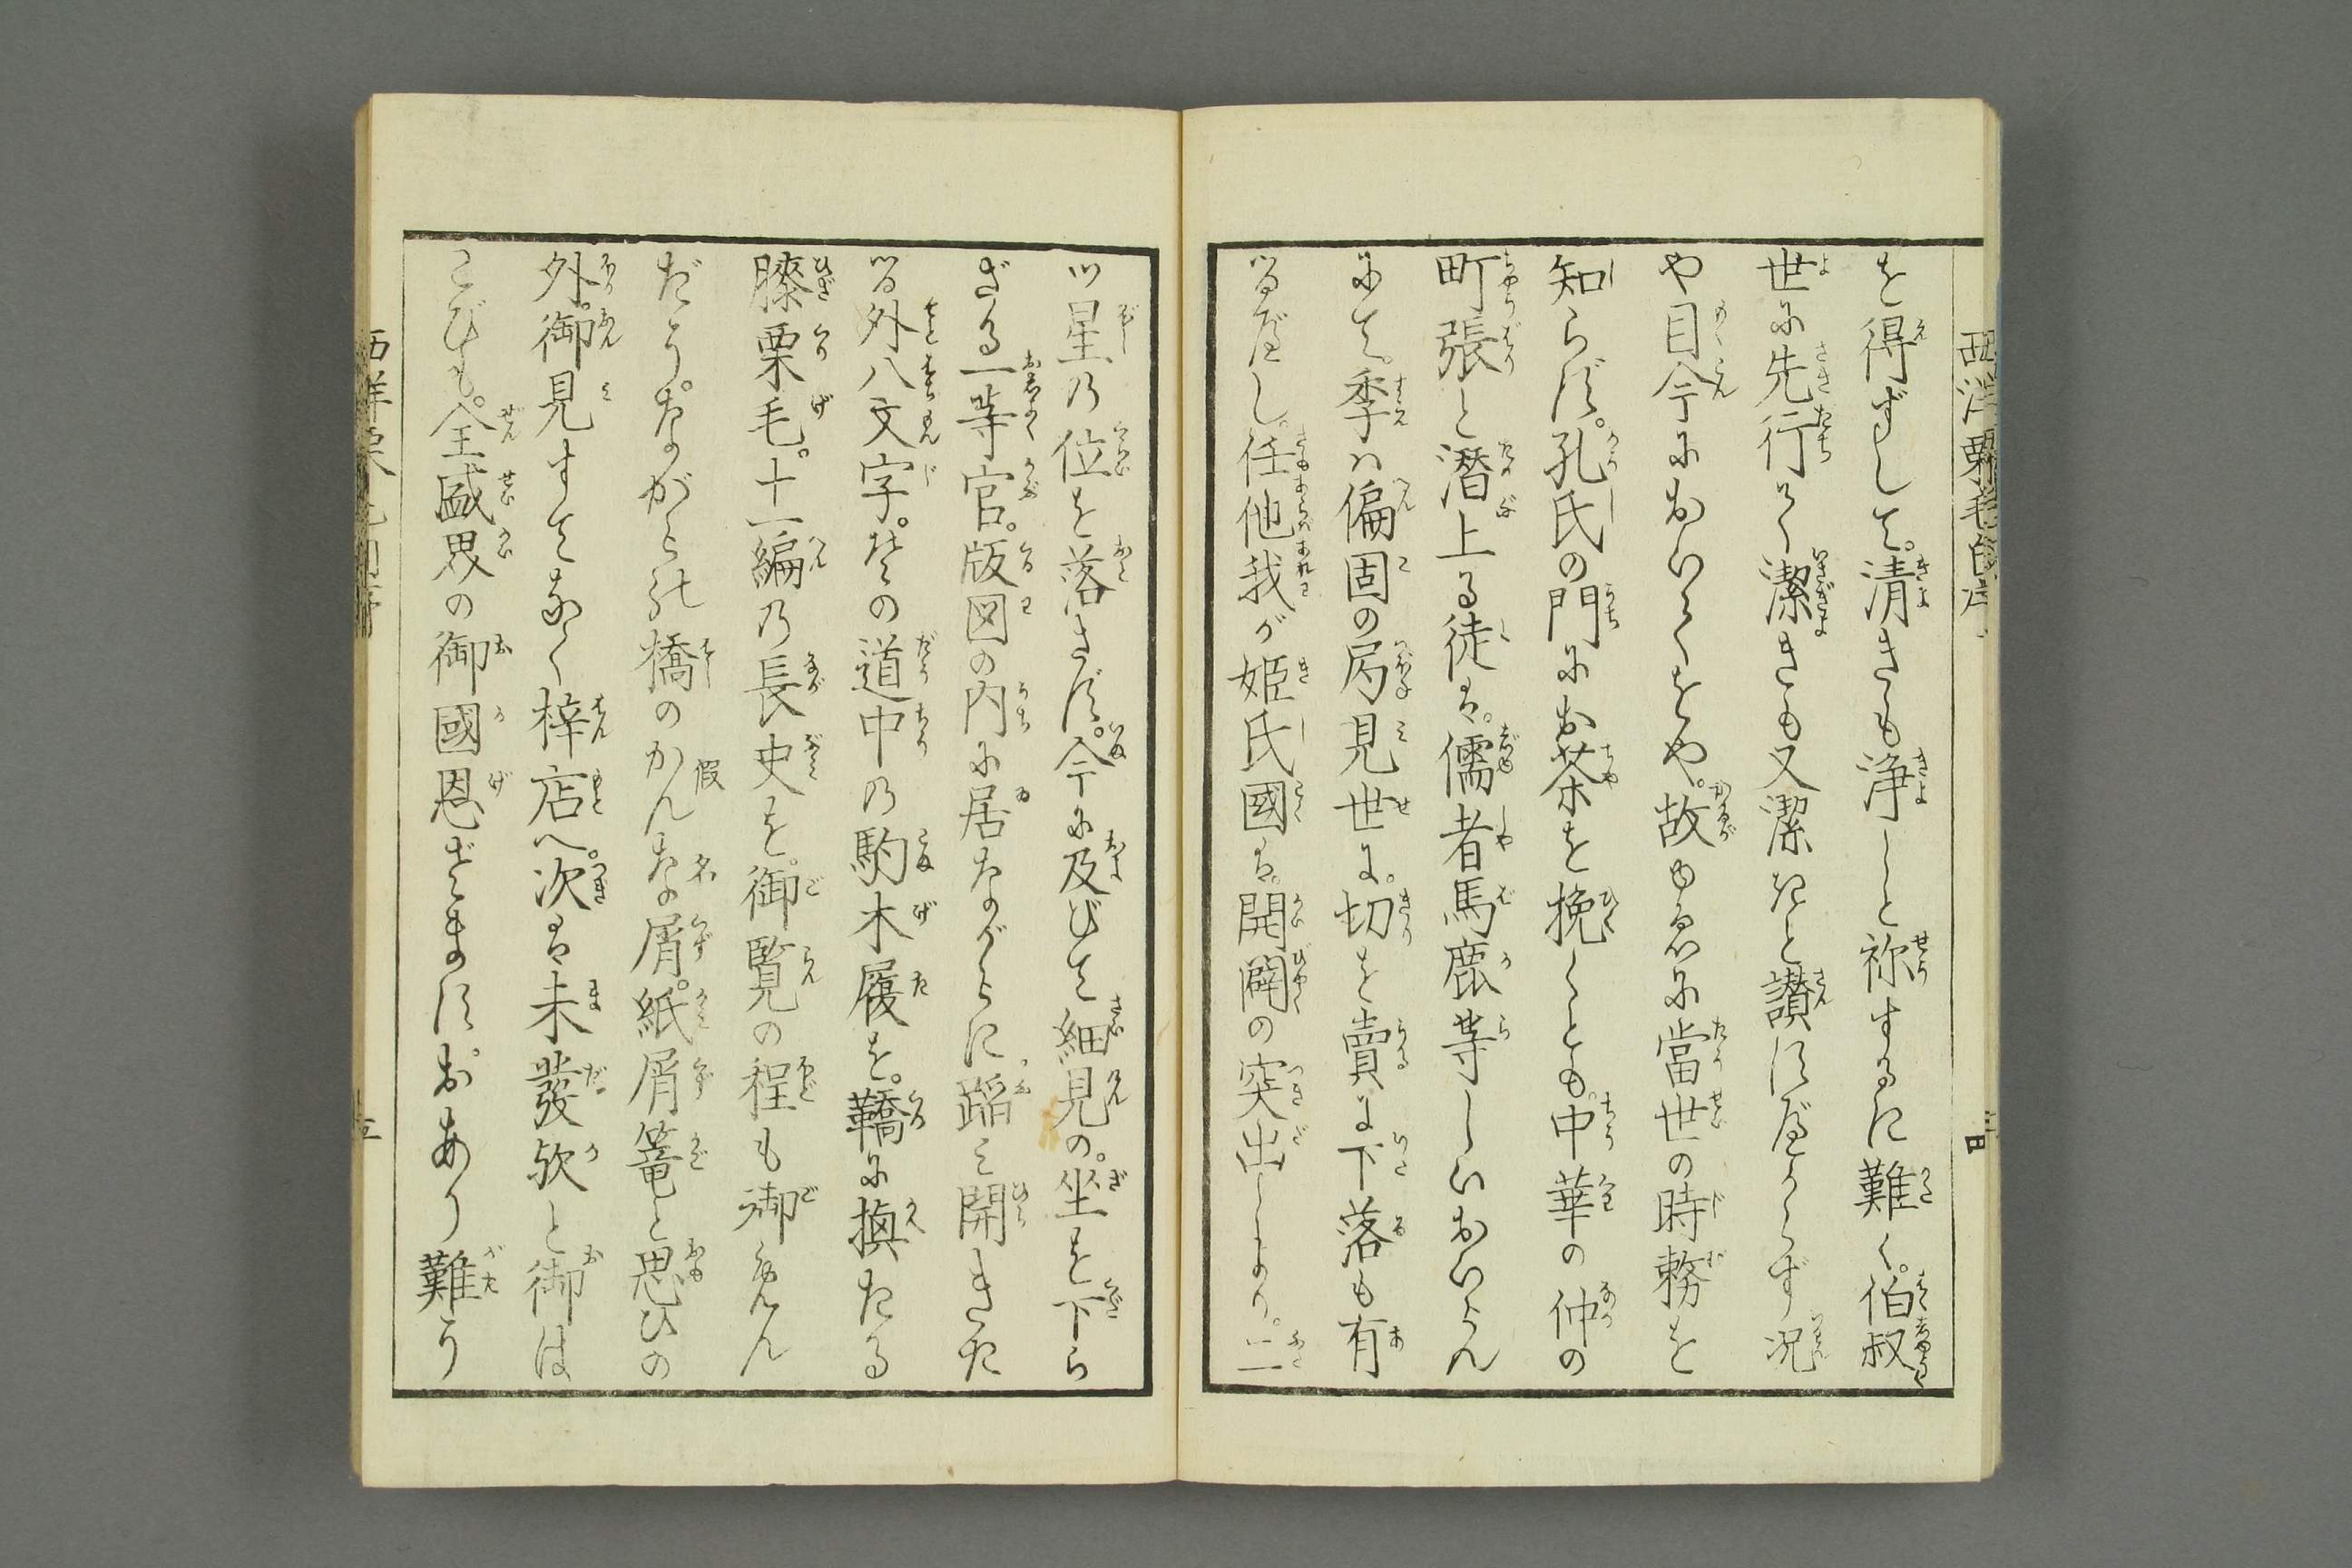 を得ずして。清きも浄しと称するに難く。伯叔
世に先行て潔きも又潔たと讃にべからず况
や目今においてをや。故ゆゑに當世の時務を
知らず。孔氏の門にお茶を挽くとも。中華の仲の
町張と潜上る徒は。儒者馬鹿等しいおいらん
にて。季は偏固の局見世に。切を賣に下落も有
るべし。任他我が姫氏國は。開闢の突出しより。二
ツ星の位を落さず。今に及びて細見の。坐を下ら
ざる一等官。版図の内に居ながらに蹈み開きた
る外八文字。その道中の駒木履を。鞽に換たる
膝栗毛。十一編の長史を。御覧の程も御
だう。ながらの橋のかんな屑。紙屑篭と思ひの
假名
外。御見すてなく梓店へ。次は未發欤と御は
こびも。全盛界の御國恩ざます。おあり難う
西洋栗毛